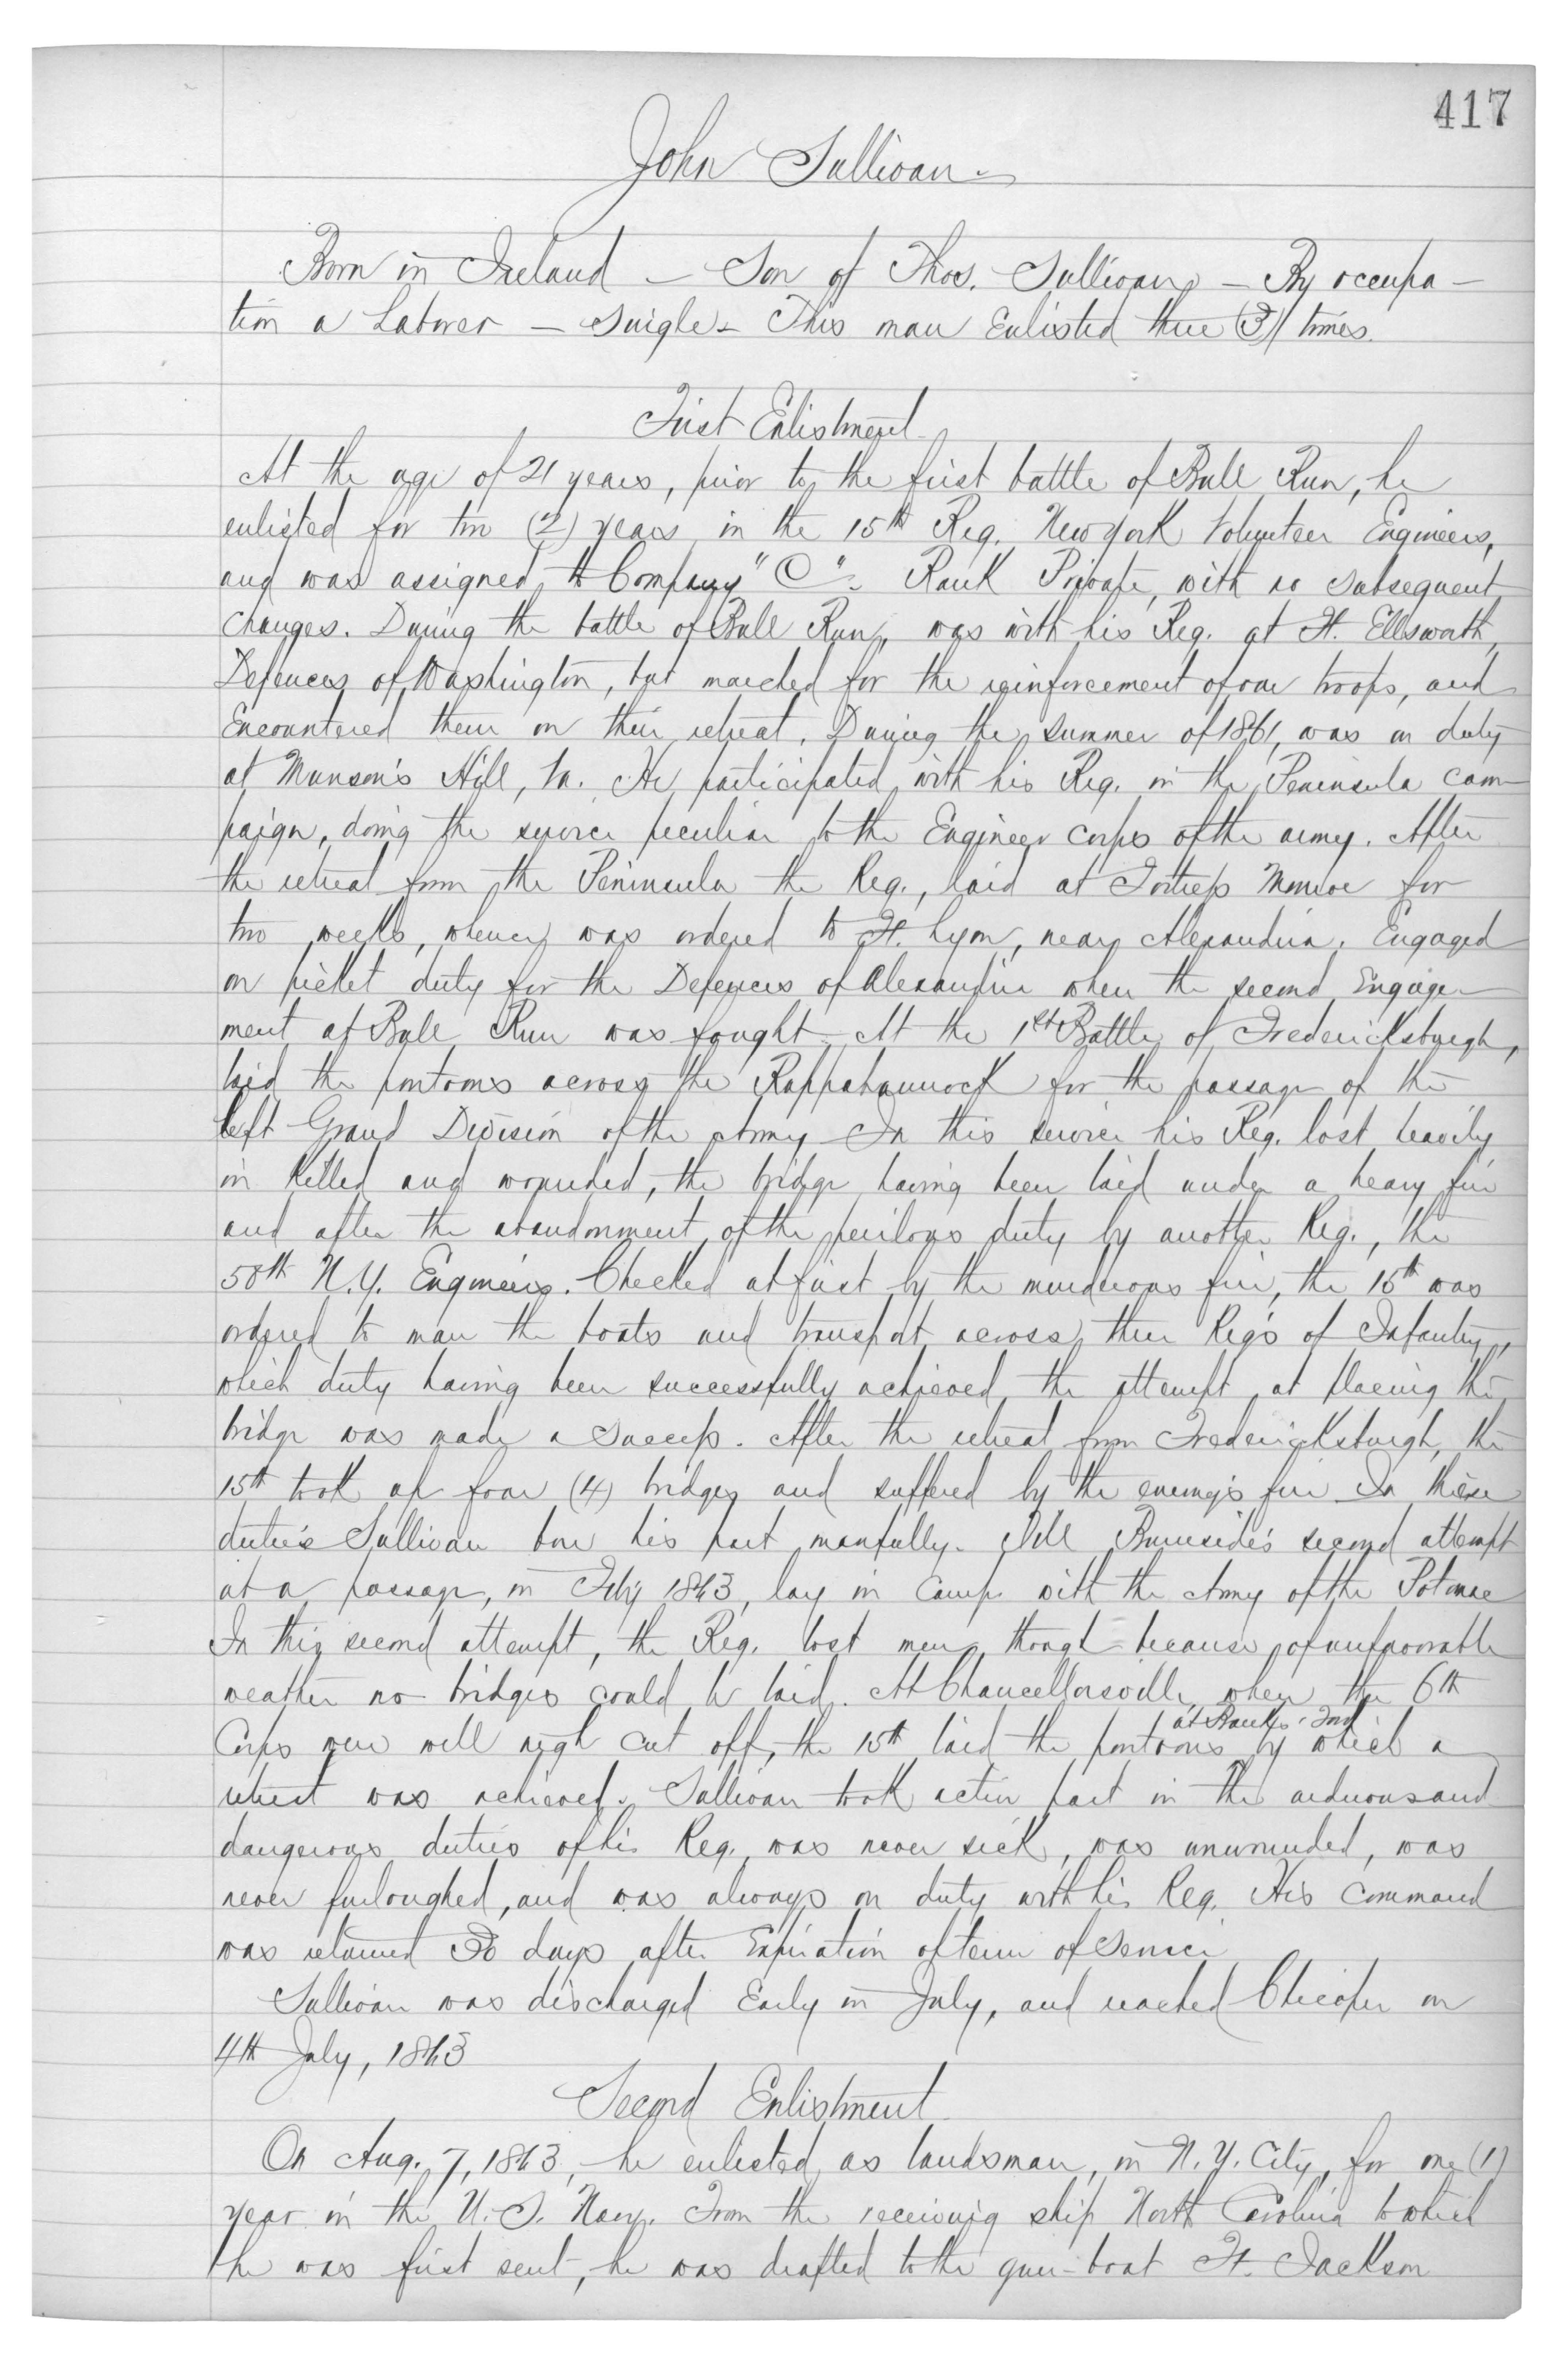 417
John Sullivan
Born in Ireland – Son of Thos. Sullivan – By occupa-
tion a Laborer – Single – This man Enlisted three (3) times.
First Enlistment
At the age of 21 years, prior to the first battle of Bull Run, he
enlisted for two (2) years in the 15th Reg. New York Volunteer Engineers,
and was assigned to Company "C". Rank Private, with no subsequent
changes. During the battle of Bull Run, was with his Reg. at Ft. Ellsworth,
Defences of Washington, but marched for the reinforcement of our troops, and
Encountered them on their retreat. During the summer of 1861, was on duty
at Munson's Hill, Va. He participated with his Reg. in the Peninsula cam-
paign, doing the service peculiar to the Engineer Corps of the army. After
the retreat from the Peninsula the Reg., laid at Fortress Monroe for
two weeks, whence was ordered to Ft. Lyon, near Alexandria. Engaged
on picket duty for the Defences of Alexandria when the second Engage-
ment at Bull Run was fought. At the 1st Battle of Fredericksburgh,
laid the pontoons across the Rappahannock for the passage of the
Left Grand Division of the Army. In this service his Reg. lost heavily
in killed and wounded, the bridge having been laid under a heavy fire
and after the abandonment of the perilous duty by another Reg., the
50th N.Y. Engineers. Checked at first by the murderous fire, the 15th was
ordered to man the boats and transport across three Reg's of Infantry,
which duty having been successfully achieved, the attempt at placing the
bridge was made a success. After the retreat from Fredericksburgh, the
15th took up four (4) bridges and suffered by the enemy's fire. In these
duties Sullivan bore his part manfully. Till Burnside's second attempt
at a passage, in Feb'y 1863, lay in Camp with the Army of the Potomac
In this second attempt, the Reg. lost men, though because of unfavorable
weather no bridges could be laid. At Chancellorsville, when the 6th
at Banks' Ford
Corps were well nigh cut off, the 15th laid the pontoons by which a
retreat was achieved. Sullivan took active part in the arduous and
dangerous duties of his Reg., was never sick, was unwounded, was
never furloughed, and was always on duty with his Reg. His command
was retained 30 days after Expiration of term of service
Sullivan was discharged Early in July, and reached Chicopee on
4th July, 1863
Second Enlistment
On Aug. 7, 1863, he enlisted as landsman, in N.Y. City, for one (1)
year in the U.S. Navy. From the receiving ship North Carolina to which
he was first sent, he was drafted to the gun-boat Ft. Jackson